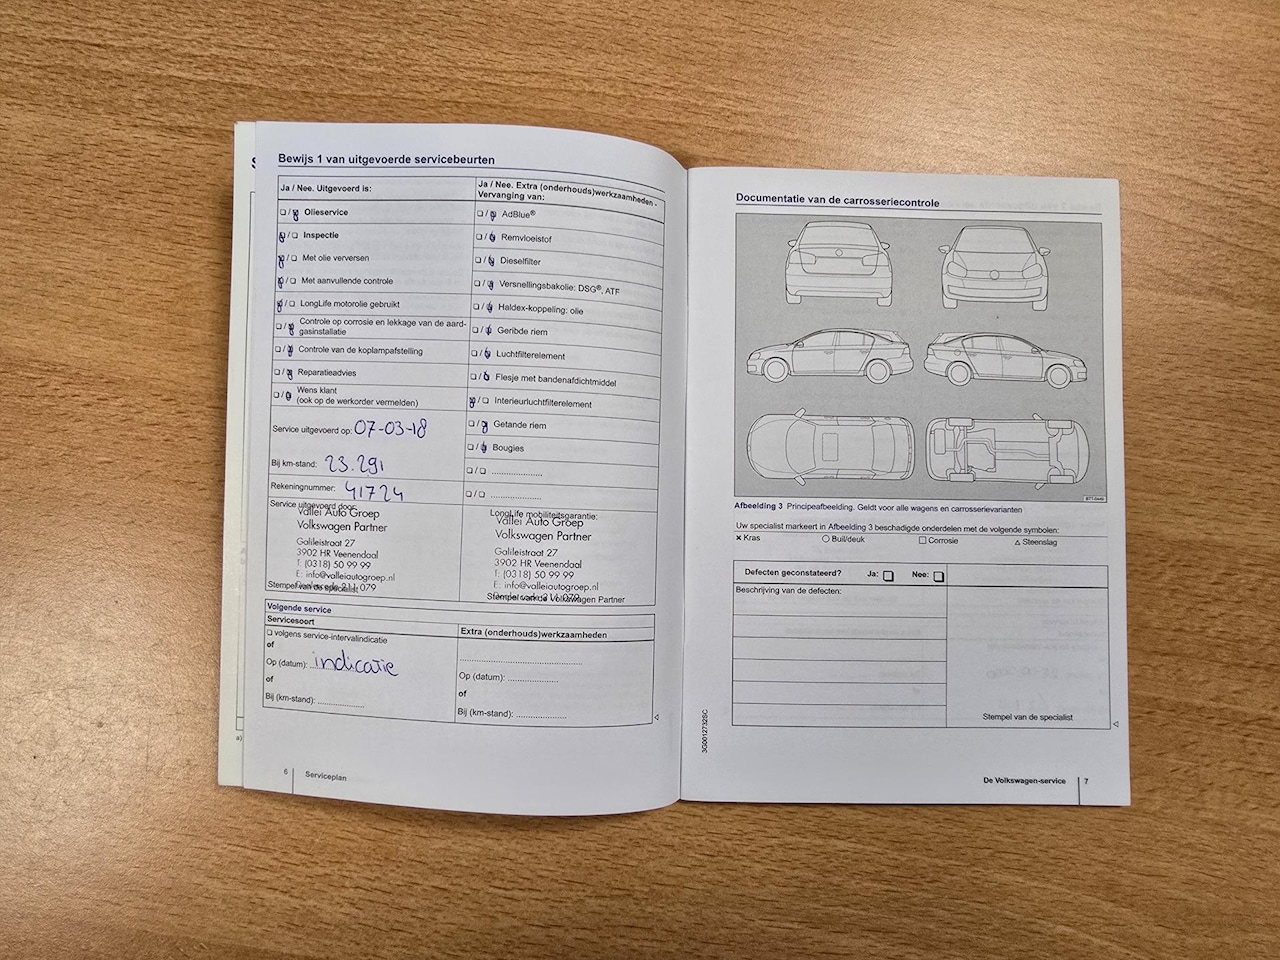 Bewijs 1 van uitgevoerde servicebeurten
Ja / Nee. Uitgevoerd is:
Olieservice
Inspectie
Met olie verversen
Met aanvullende controle
LongLife motorolie gebruikt
Controle op corrosie en lekkage van de aard-
gasinstallatie
Controle van de koplampafstelling
Reparatieadvies
Wens klant
(ook op de werkorder vermelden)
Service uitgevoerd op: 07-03-18
Bij km-stand: 23.291
Rekeningnummer: 41724
Service uitgevoerd door:
Vallei Auto Groep
Volkswagen Partner
Galileistraat 27
3902 HR Veenendaal
T: (0318) 50 99 99
E: info@valleiautogroep.nl
Stempel van de specialist
Ja / Nee. Extra (onderhouds)werkzaamheden -
Vervanging van:
AdBlue®
Remvloeistof
Dieselfilter
Versnellingsbakolie: DSG®, ATF
Haldex-koppeling: olie
Geribde riem
Luchtfilterelement
Flesje met bandenafdichtmiddel
Interieurluchtfilterelement
Getande riem
Bougies
LongLife mobiliteitsgarantie:
Vallei Auto Groep
Volkswagen Partner
Galileistraat 27
3902 HR Veenendaal
T: (0318) 50 99 99
E: info@valleiautogroep.nl
Stempel van de Volkswagen Partner
Volgende service
Servicesoort
volgens service-intervalindicatie
of
Op (datum): indicatie
of
Bij (km-stand): ....................
Extra (onderhouds)werkzaamheden
Op (datum): ....................
of
Bij (km-stand): ....................
6 Serviceplan
Documentatie van de carrosseriecontrole
Afbeelding 3 Principeafbeelding. Geldt voor alle wagens en carrosserievarianten
Uw specialist markeert in Afbeelding 3 beschadigde onderdelen met de volgende symbolen:
× Kras ○ Buil/deuk □ Corrosie △ Steenslag
Defecten geconstateerd? Ja: Nee:
Beschrijving van de defecten:
Stempel van de specialist
3G0012732SC
De Volkswagen-service 7